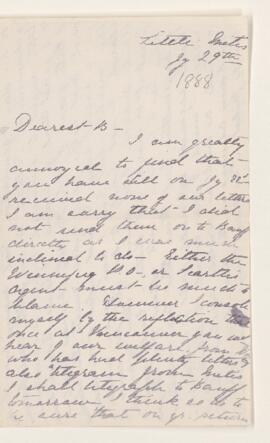 Little Metis
Jy 29th
1888
Dearest B—
I am greatly
annoyed to find that
you have still on Jy 22d
received none of our letters
I am sorry that I did
not send them on to Banff
direct, as I was much
inclined to do— Either the
Winnipeg P.O. or
agent must be much to
blame. However I console
myself by the reflection that
once at Vancouver you will
hear of our welfare from
who has had plenty letters &
also telegram from Metis
I shall telegraph to Banff
tomorrow I think so as to
be sure that on yr. return